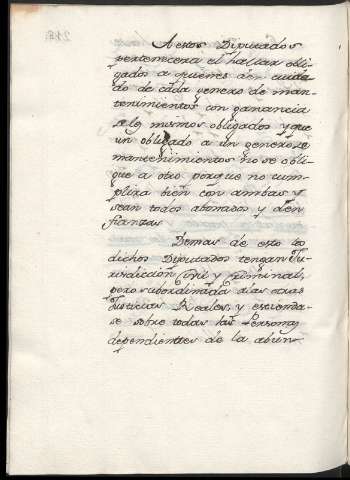 A estos Diputados
pertenecera el hallar obli-
gados a quienes den cuida
do de cada genero de man-
tenimientos con ganancia
de los mismos obligados y que
un obligado a un genero de
mantenimientos no se obli-
gue a otro porque no cum-
plira bien con ambas y
sean todos abonados y den
fianzas
Demas de esto los
dichos Diputados tengan Ju-
risdiccion Civil y Criminal,
pero subordinada a las otras
Justicias Reales, y estienda-
se sobre todas las Personas
dependientes de la abun-